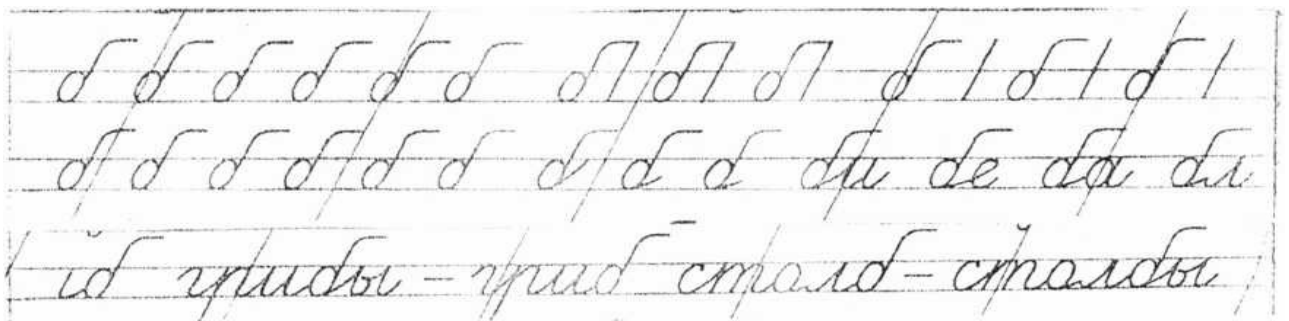 б б б б б б б| б| б| б | б | б |
б б б б б б б б б би бе ба бл
иб грибы – гриб столб – столбы